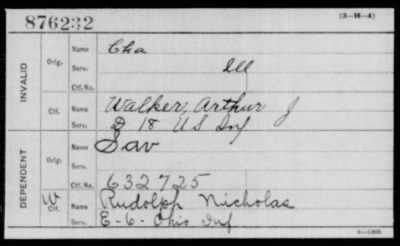 876232 (3-H-4)
INVALID
Orig. Name Cha
Serv. Ill
Ctf.No.
Ctf. Name Walker, Arthur J
Serv. D 18 US Inf
DEPENDENT
Orig. Name Sav
Serv.
Ctf. No. 632725
W Ctf. Name Rudolph Nicholas
Serv. E-6-Ohio Inf